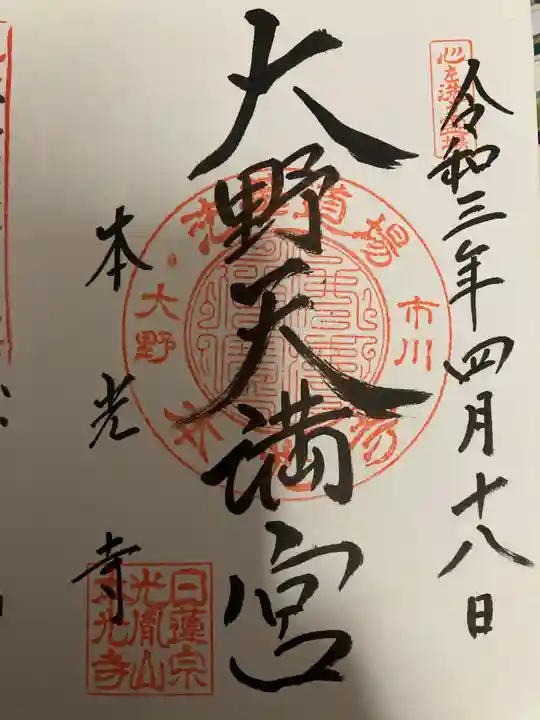 令和三年四月十八日
大野天満宮
道場
市川
大野
本光寺
日蓮宗
光胤山
本光寺